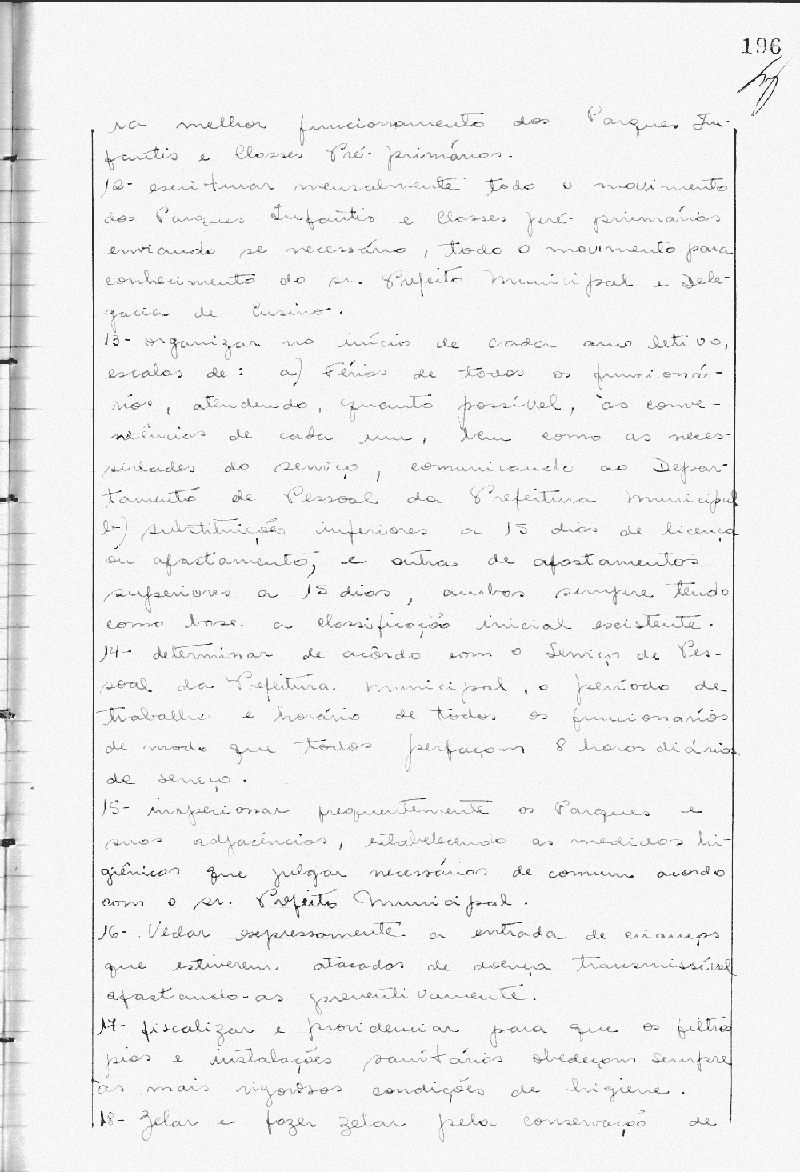 196
ra melhor funcionamento dos Parques In-
fantis e Classes Pré-primárias.
12- escriturar mensalmente todo o movimento
dos Parques Infantis e Classes pré-primárias
enviando se necessário, todo o movimento para
conhecimento do sr. Prefeito Municipal e Dele-
gacia de Ensino.
13- organizar no início de cada ano letivo,
escalas de: a) Férias de todos os funcioná-
rios, atendendo, quanto possível, às conve-
niências de cada um, bem como as neces-
sidades do serviço, comunicando ao Depar-
tamento de Pessoal da Prefeitura Municipal
b) substituições inferiores a 15 dias de licença
ou afastamento; e outras de afastamentos
superiores a 15 dias, ambas sempre tendo
como base a classificação inicial existente.
14- determinar de acôrdo com o Serviço de Pes-
soal da Prefeitura Municipal, o período de
trabalho e horário de todos os funcionários
de modo que todos perfaçam 8 horas diárias
de serviço.
15- inspecionar frequentemente os Parques e
suas adjacências, estabelecendo as medidas hi-
giênicas que julgar necessárias de comum acordo
com o sr. Prefeito Municipal.
16- Vedar expressamente a entrada de crianças
que estiverem atacadas de doença transmissível
afastando-as preventivamente.
17- fiscalizar e providenciar para que os filtros
pias e instalações sanitárias obedeçam sempre
às mais rigorosas condições de higiene.
18- Zelar e fazer zelar pela conservação de